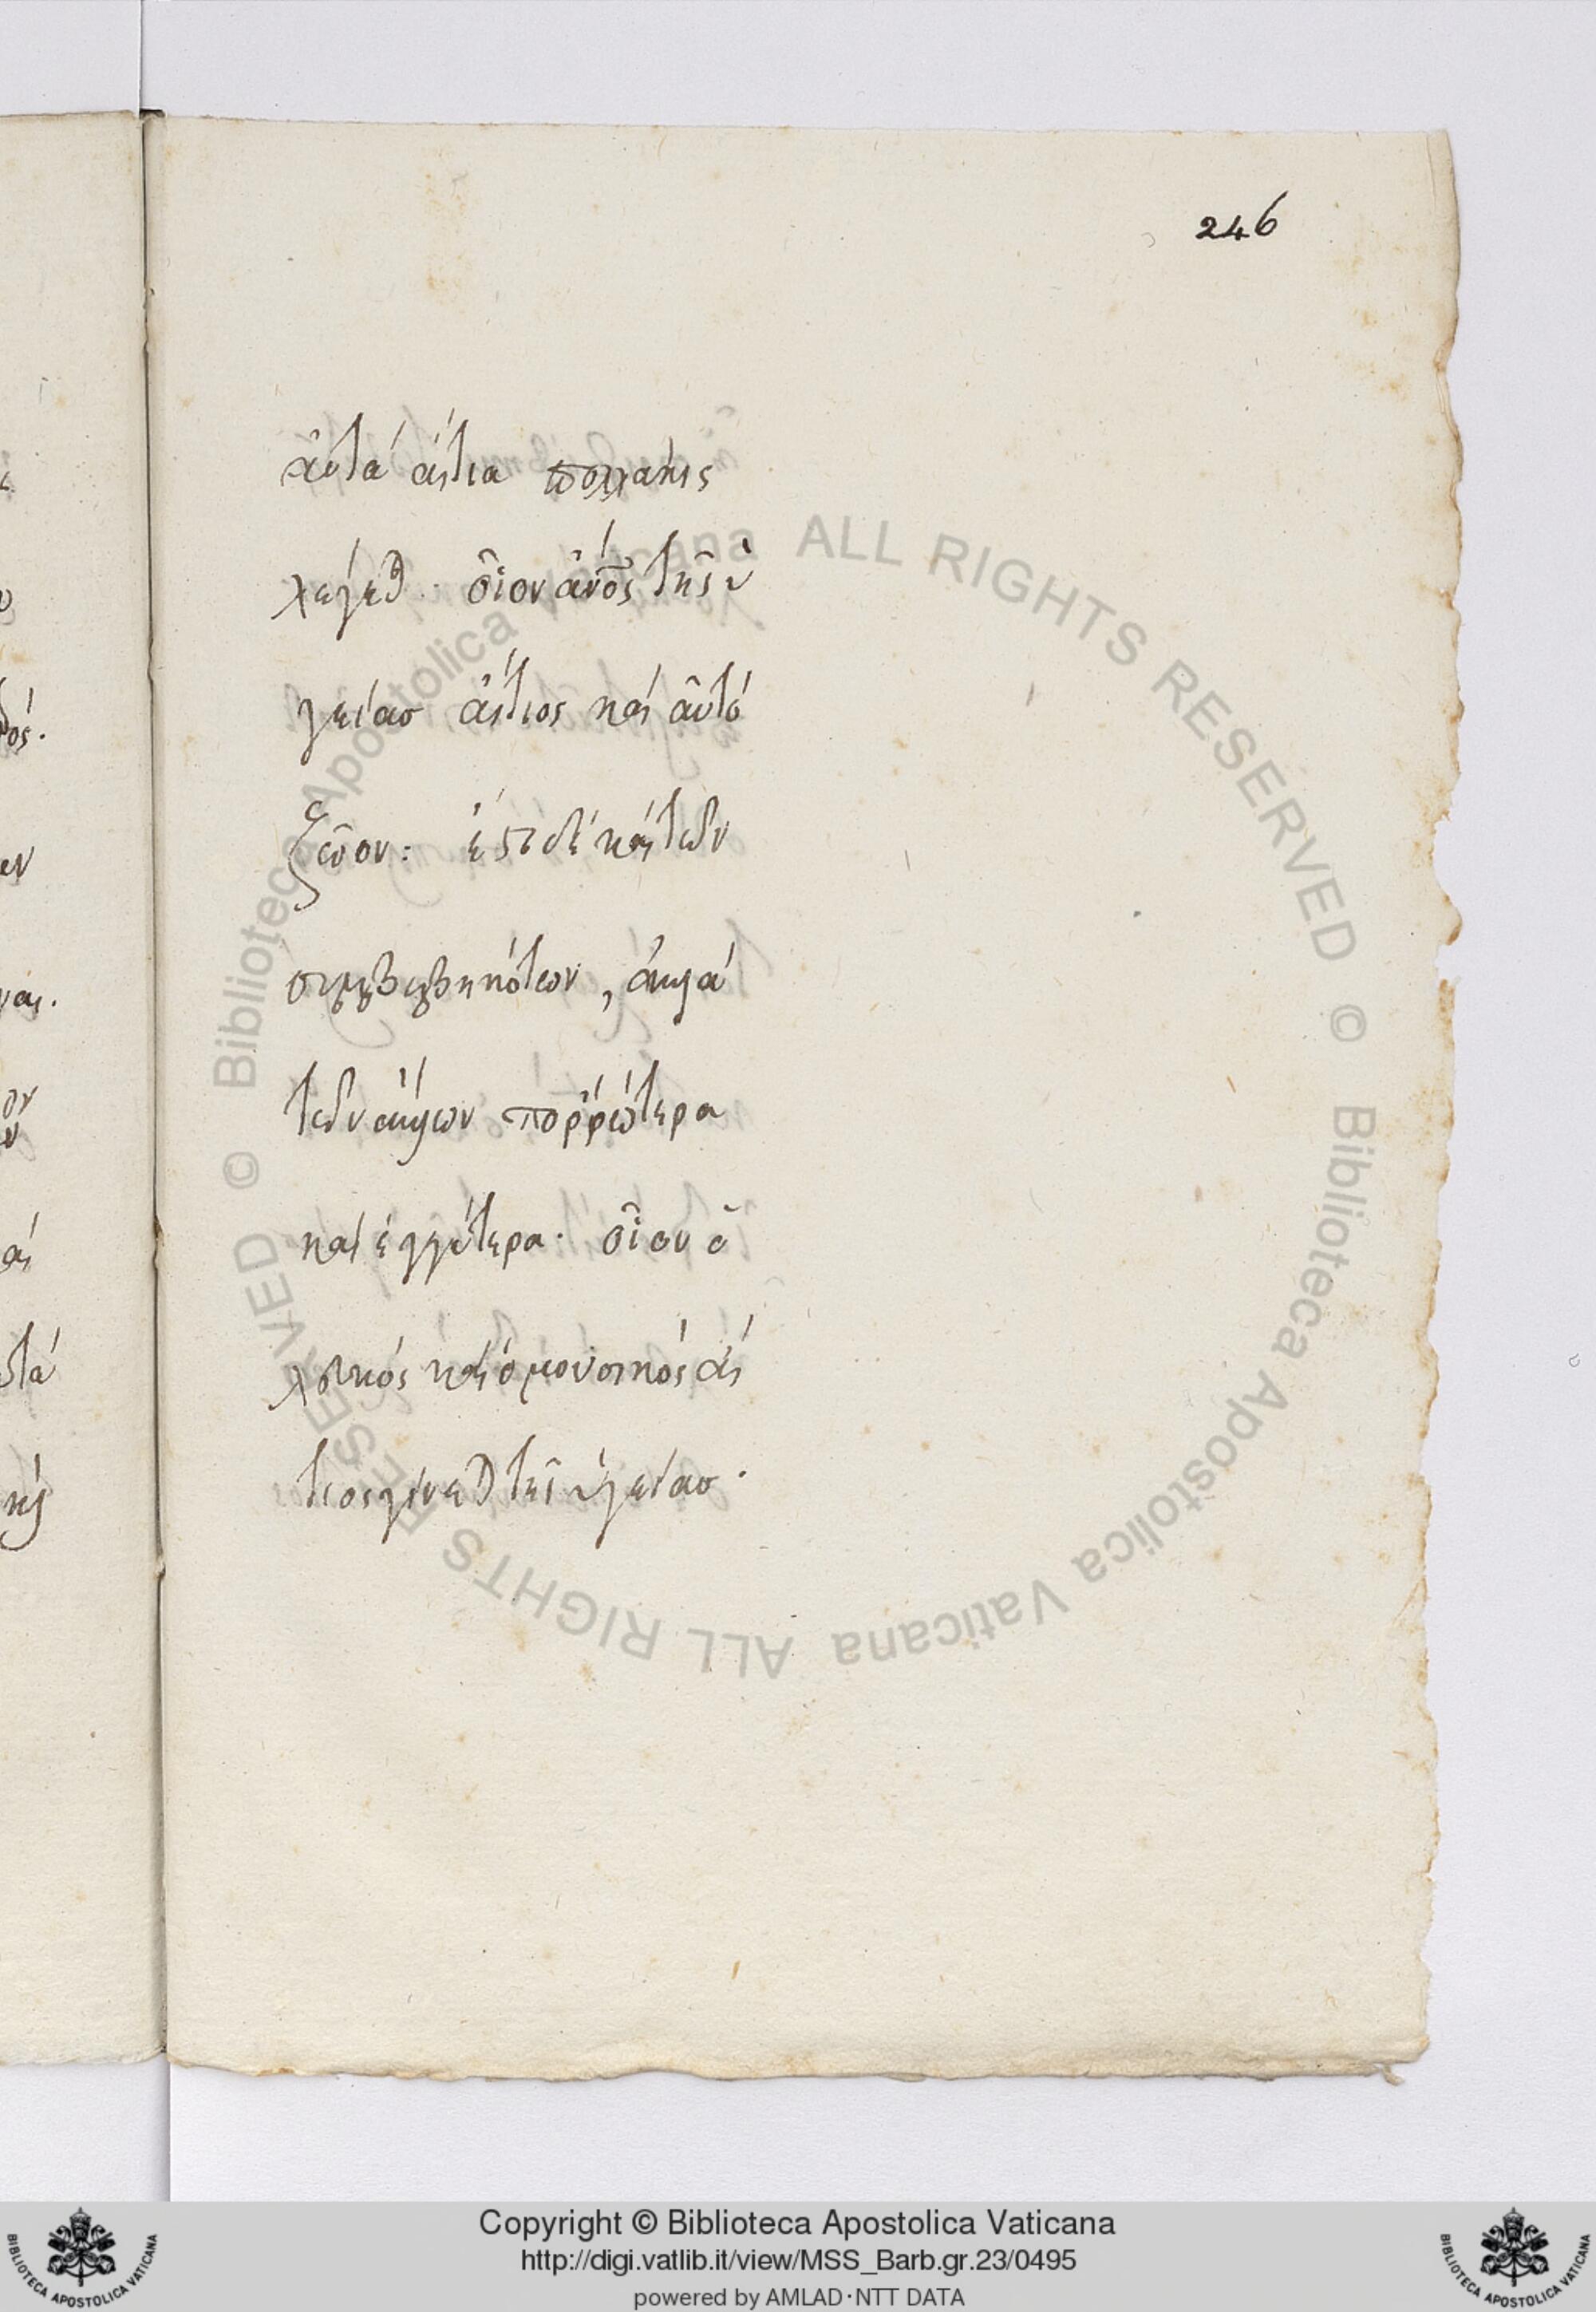 246
αὐτὰ αἴτια πολλάκις
λέγεται. οἷον ἄνος τῆς ὑ
γείας αἴτιος καὶ αὐτὸ
ζῶον: ἔστι δὲ καὶ τῶν
συμβεβηκότων, ἄλλα
τῶν ἄλλων πορρώτερα
καὶ ἐγγύτερα. οἷον ὁ
λευκός καὶ ὁ μουσικός αἴ
τιος γίνεται τῆς ὑγείας.
Copyright © Biblioteca Apostolica Vaticana
http://digi.vatlib.it/view/MSS_Barb.gr.23/0495
powered by AMLAD·NTT DATA
© Biblioteca Apostolica Vaticana ALL RIGHTS RESERVED © Biblioteca Apostolica Vaticana ALL RIGHTS RESERVED
BIBLIOTECA APOSTOLICA VATICANA
BIBLIOTECA APOSTOLICA VATICANA